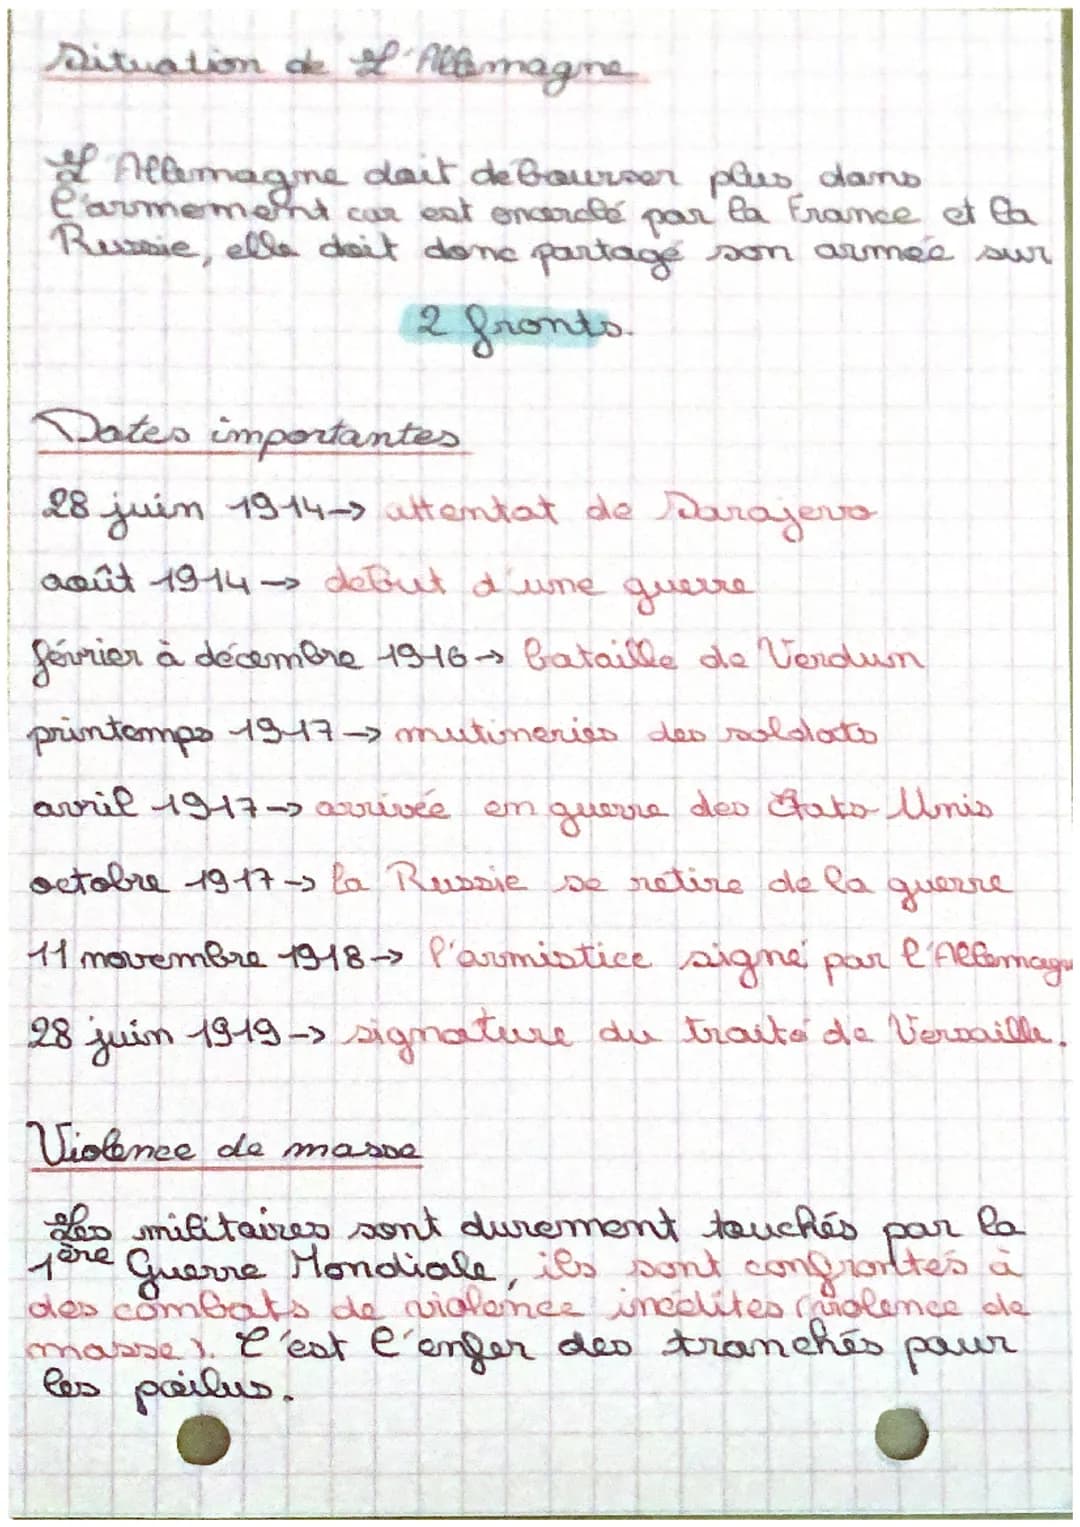 Situation de l'Allemagne
L'Allemagne doit débourser plus dans
l'armement car est encerclé par la France et la
Russie, elle doit donc partagé son armée sur
2 fronts.
Dates importantes
28 juin 1914 → attentat de Sarajevo
août 1914 → début d'une guerre
février à décembre 1916 → bataille de Verdun
printemps 1917 → mutineries des soldats
avril 1917 → arrivée en guerre des États-Unis
octobre 1917 → la Russie se retire de la guerre
11 novembre 1918 → l'armistice signé par l'Allemagn
28 juin 1919 → signature du traité de Versaille.
Violence de masse
Les militaires sont durement touchés par la
1ère Guerre Mondiale, ils sont confrontés à
des combats de violence inédites (violence de
masse). C'est l'enfer des tranchés pour
les poilus.